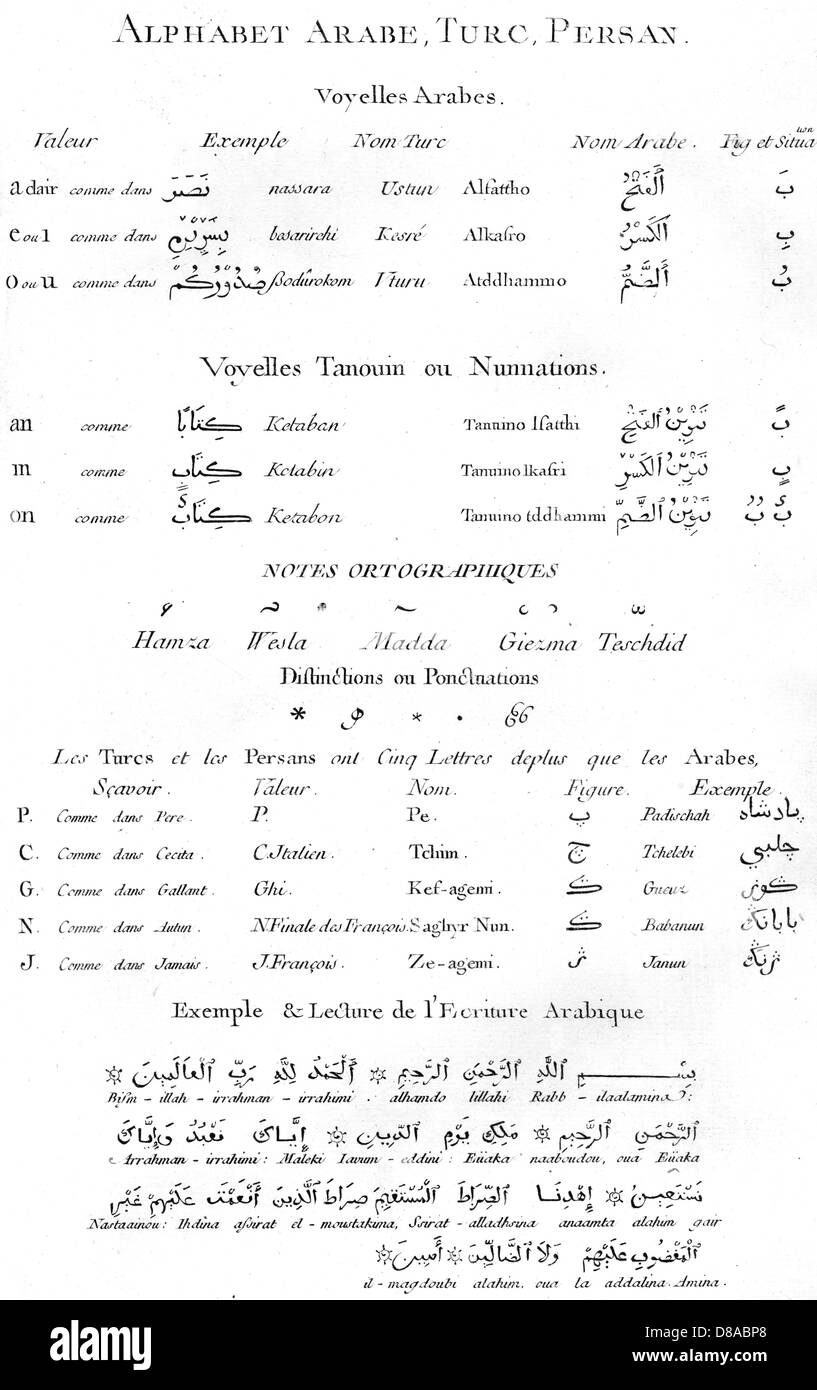 ALPHABET ARABE, TURC, PERSAN.
Voyelles Arabes.
Valeur Exemple Nom Turc Nom Arabe. Fig et Situa^tion
a dair comme dans نَصَرَ nassara Ustun Alfattho اَلْفَتْحُ بَ
e ou i comme dans besarirehi Kesré Alkasro اَلْكَسْرُ بِ
o ou u comme dans صُدُورُكُمْ ßodûrokom Uturu Atddhammo اَلضَّمُّ بُ
Voyelles Tanouin ou Nunnations.
an comme كِتَابًا Ketaban Tanuino lfatthi تَنْوِينُ الْفَتْحِ بً
in comme كِتَابٍ Ketabin Tanuino lkasri تَنْوِينُ الْكَسْرِ بٍ
on comme كِتَابٌ Ketabon Tanuino tddhammi تَنْوِينُ الضَّمِّ بٌ بٌ
NOTES ORTOGRAPHIQUES
Hamza Wesla Madda Giezma Teschdid
Distinctions ou Ponctuations
Les Turcs et les Persans ont Cinq Lettres deplus que les Arabes,
Sçavoir. Valeur. Nom. Figure. Exemple.
P. Comme dans Pere. P. Pe. پ Padischah پادشاه
C. Comme dans Cecita. C Italien. Tchim. چ Tchelebi چلبي
G. Comme dans Gallant. Ghi. Kef-agemi. Gueuz
N. Comme dans Autun. N Finale des François. Saghyr Nun. Babanun بابانڭ
J. Comme dans Jamais. J. François. Ze-agemi. ژ Janun ژنڭ
Exemple & Lecture de l'Ecriture Arabique
بِسْمِ اللَّهِ الرَّحْمَنِ الرَّحِيمِ ۞ اَلْحَمْدُ لِلَّهِ رَبِّ الْعَالَمِينَ ۞
Bism - illah - irrahman - irrahimi. alhamdo lillahi Rabb - ilaalamina:
الرَّحْمَنِ الرَّحِيمِ ۞ مَلِكِ يَوْمِ الدِّينِ ۞ إِيَّاكَ نَعْبُدُ وَإِيَّاكَ
Arrahman - irrahimi: Maleki Iavum - eddini: Eüaka naaboudou, oua Eüaka
نَسْتَعِينُ ۞ إِهْدِنَا الصِّرَاطَ الْمُسْتَقِيمَ صِرَاطَ الَّذِينَ أَنْعَمْتَ عَلَيْهِمْ غَيْرِ
Nastaainou: Ihdina assirat el - moustakima, Ssirat - alladhsina anaamta alahim gair
الْمَغْضُوبِ عَلَيْهِمْ وَلَا الضَّالِّينَ ۞ أَمِينَ ۞
il - magdoubi alahim, oua la addalina. Amina.
alamy
www.alamy.com
D8ABP8